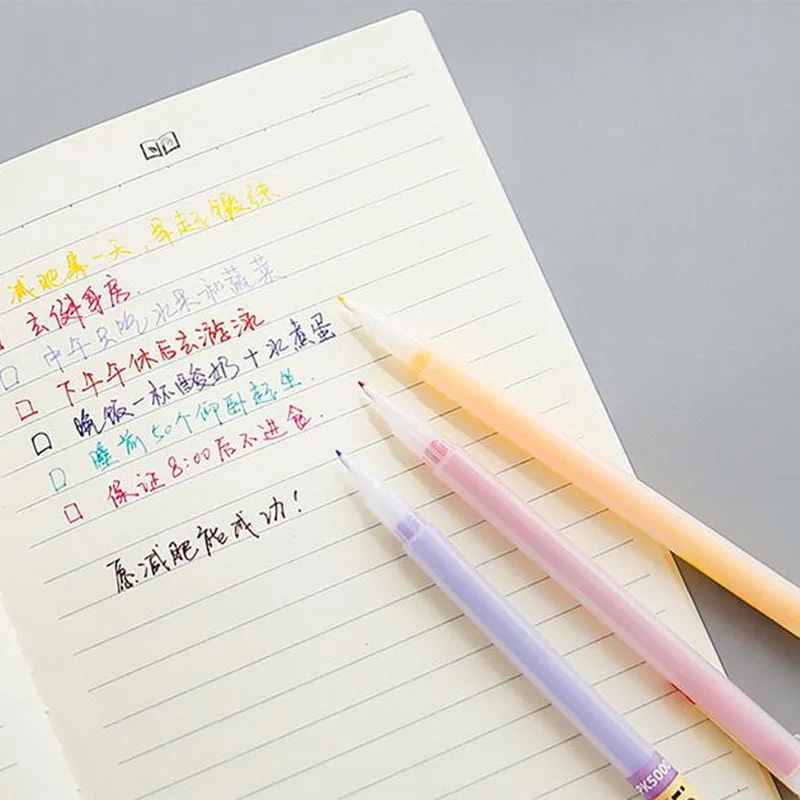 减肥第一天,早起锻练
去健身房.
中午只吃水果和蔬菜
下午午休后去游泳
晚饭一杯酸奶+水煮蛋
睡前50个仰卧起坐.
保证8:00后不进食.
愿减肥能成功!
PK5000